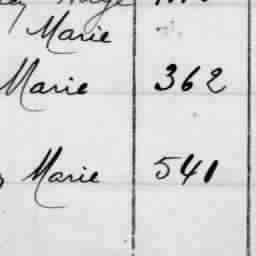 Marie
Marie 362
Marie 541